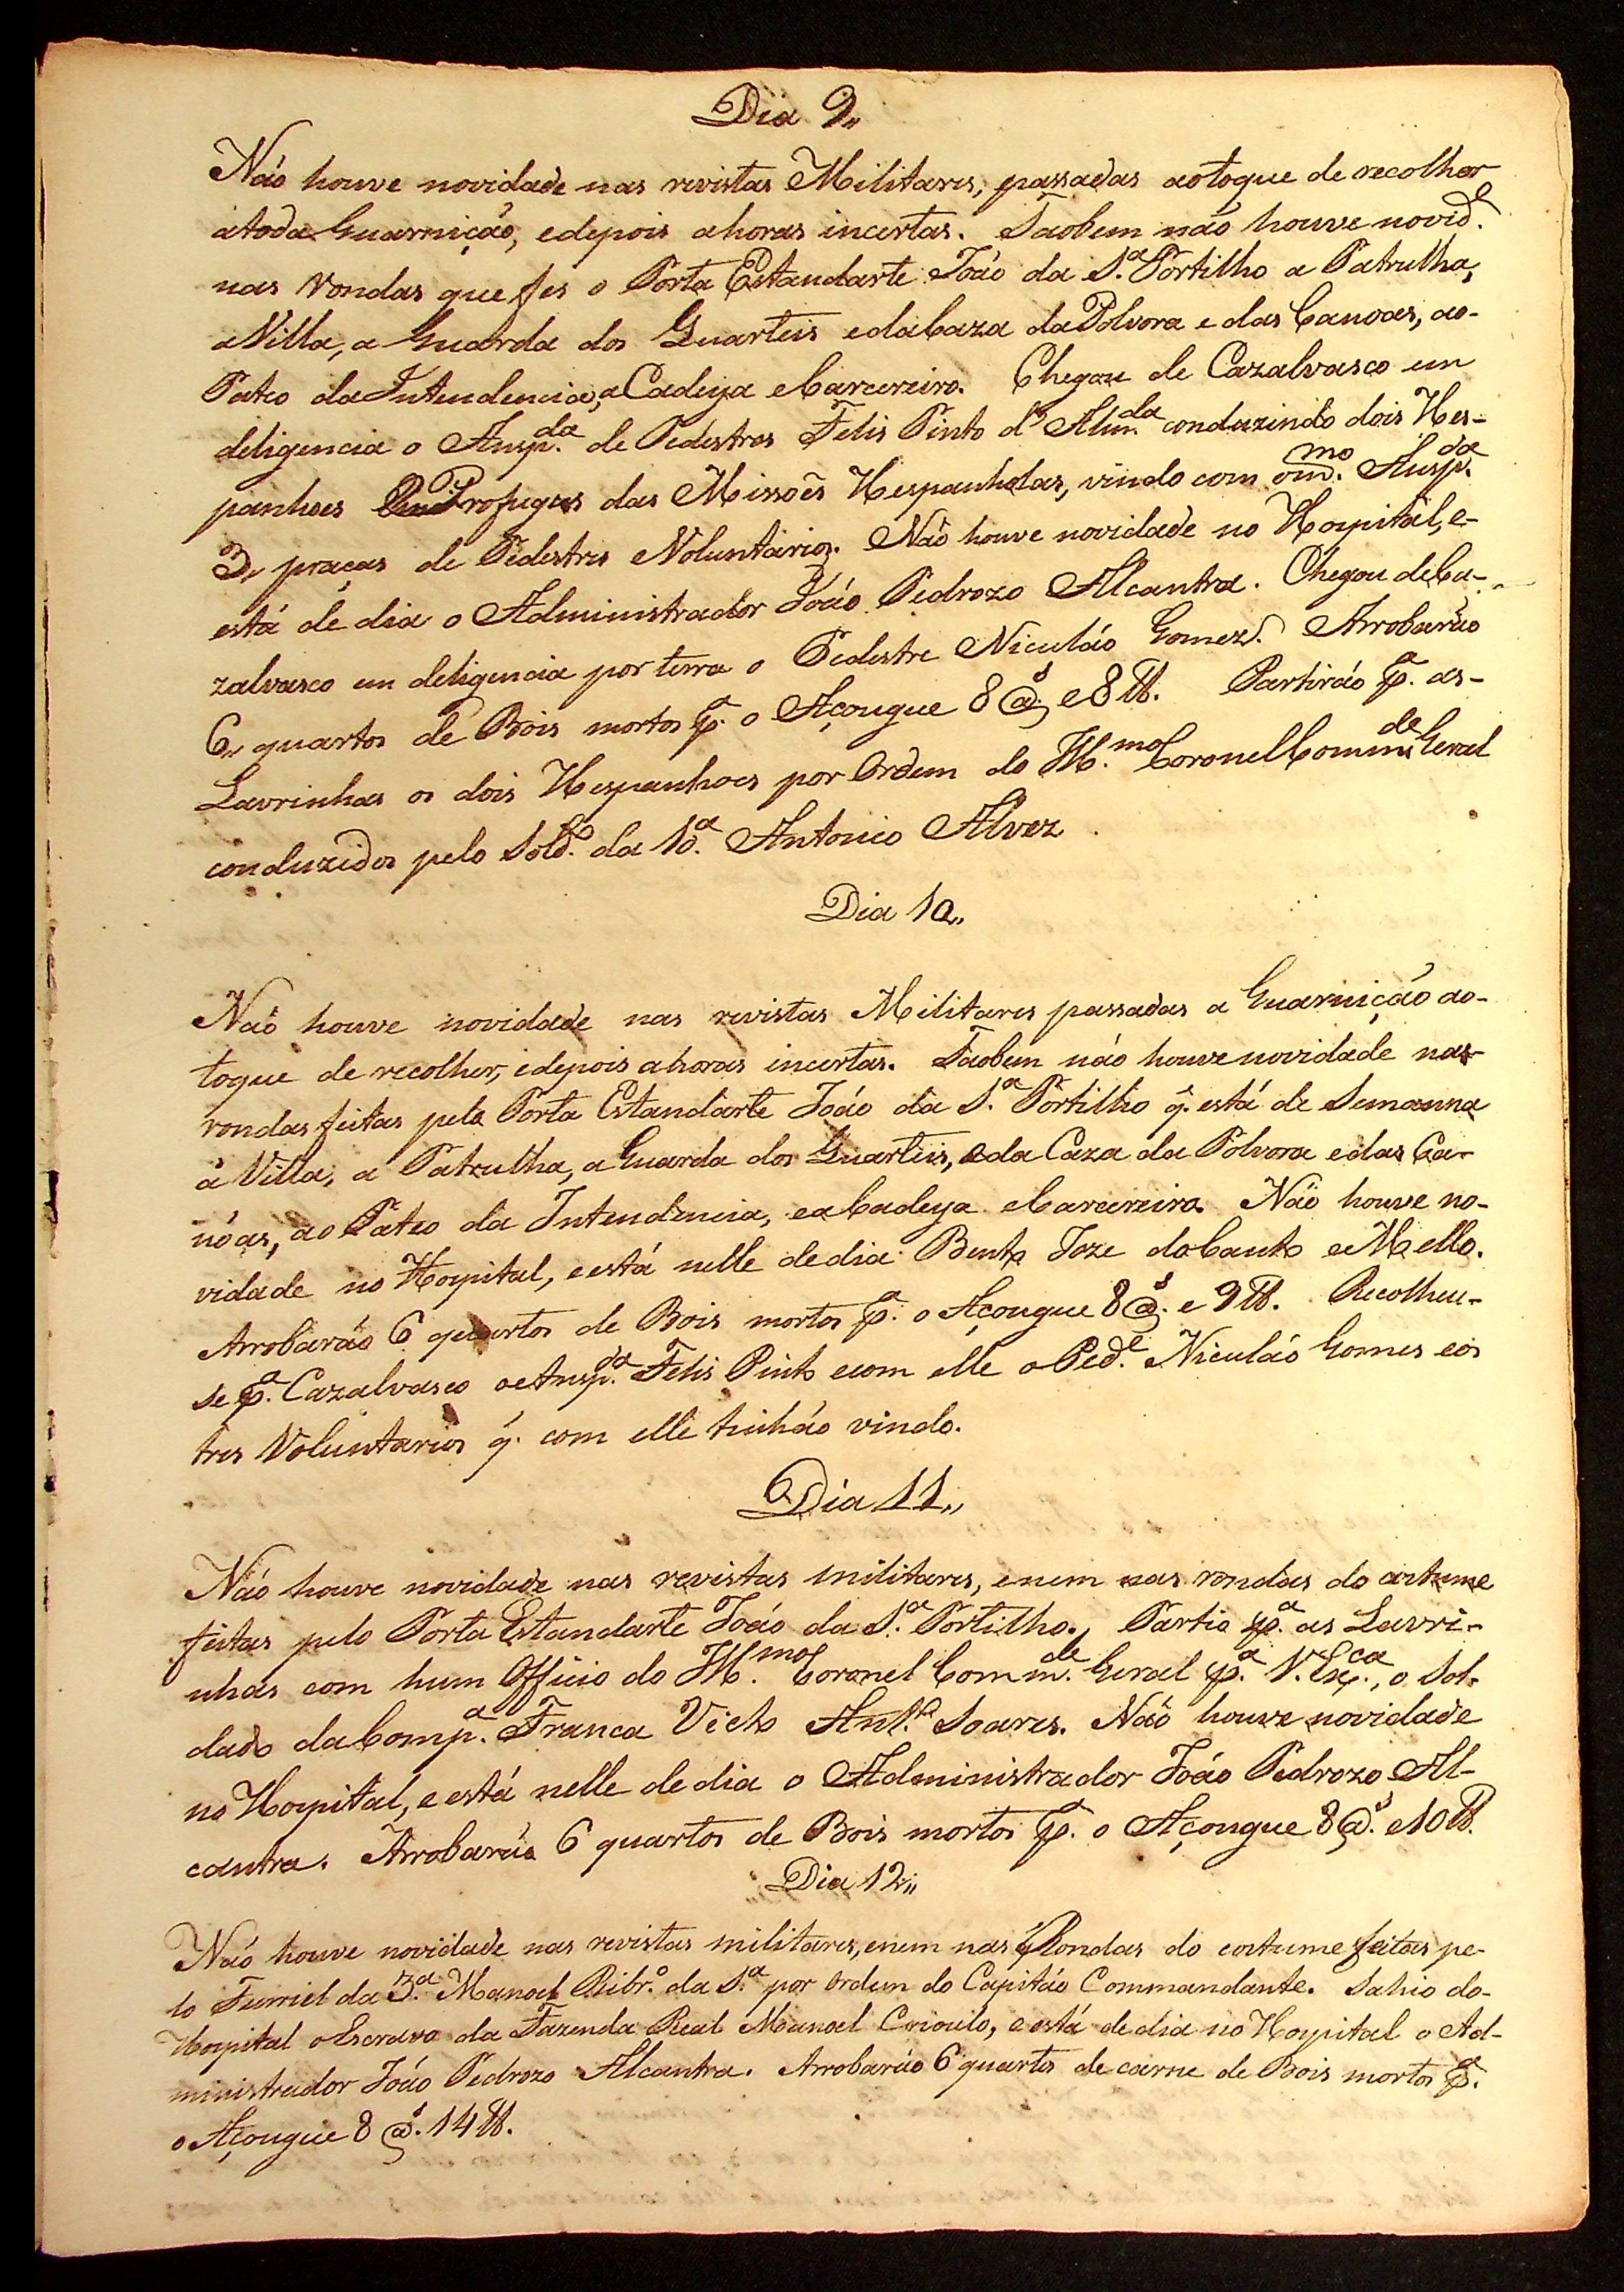 Dia 9,,
Não houve novidade nas revistas Militares, passadas ao toque de recolher
atoda Guarnição, edepois ahoras incertas. Taobem não houve novid.e
nas rondas que fes o Porta Estandarte João da S.a Portilho a Patrulha,
a Villa, a Guarda dos Quarteis edaCaza daPolvora e das Canoas, ao-
Pateo daIntendencia, a Cadeya eCarcereiro. Chegou de Cazalvasco em
deligencia o Ansp.da de Pedestres Felis Pinto d' Alm.da conduzindo dois Hes-
panhoes Profugos das Missoẽs Hespanholas, vindo com o m.mo Ansp.da
3,, praças de Pedestres eVoluntarios. Não houve novidade no Hospital, e-
está de dia o Administrador João Pedrozo Alcantra. Chegou deCa-
zalvasco em deligencia por terra o Pedestre Niculáo Gomez. Arrobarão
6,, quartos de Bois mortos p.a o Açougue 8 @.s e 8 lb. Partiráo p.a as-
Lavrinhas os dois Hespanhoes por Ordem do Ill.mo Coronel Comm.de Geral
conduzidos pelo Sold.o da 1a. Antonio Alvez.
Dia 10,,
Não houve novidade nas revistas Militares passadas a Guarnição ao-
toque de recolher, edepois ahoras incertas. Taobem não houve novidade nas-
rondas feitas pelo Porta Estandarte João da S.a Portilho q. está de Semanna
á Villa, a Patrulha, a Guarda dos Quarteis, eda Caza da Polvora edas Ca-
nóas, ao Pateo da Intendencia, ea Cadeya eCarcereiro. Não houve no-
vidade no Hospital, eestá nelle dedia Bento Joze doCanto eMello.
Arrobarão 6 quartos de Bois mortos p.a o Açougue 8 @.s e 9 lb. Recolheu-
se p.a Cazalvasco o Ansp.da Felis Pinto ecom elle o Ped.e Niculáo Gomes eos
tres Voluntarios q. com elle tinháo vindo.
Dia 11,,
Não houve novidade nas revistas militares, enem nas rondas do costume
feitas pelo Porta Estandarte João da S.a Portilho. Partio p.a as Lavri-
nhas com hum Officio do Ill.mo Coronel Comm.de Geral p.a V. Ex.ca, o Sol-
dado daComp.a Franca Victo Ant.o Soares. Não houve novidade
no Hospital, e está nelle de dia o Administrador João Pedrozo Al-
cantra. Arrobarão 6 quartos de Bois mortos p.a o Açougue 8 @.s e 10 lb.
Dia 12,,
Não houve novidade nas revistas militares, enem nas Rondas do costume feitas pe-
lo Furriel da 3.a Manoel Ribr.o da S.a por Ordem do Capitáo Commandante. Sahio do-
Hospital o Escravo da Fazenda Real Manoel Crioulo, e está de dia no Hospital o Ad-
ministrador João Pedrozo Alcantra. Arrobarão 6 quartos de carne de Bois mortos p.a
o Açougue 8 @.s 14 lb.